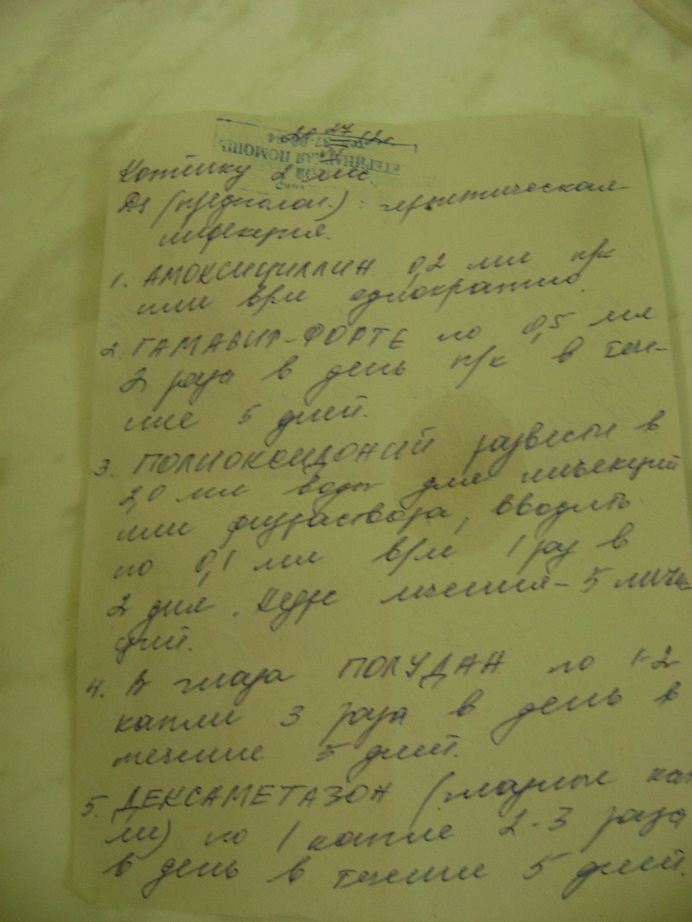 ЕТЕРИНАРНАЯ ПОМОЩЬ
Котику 2
Дз (предполог.): герпетическая
инфекция.
1. АМОКСИЦИЛЛИН 0,2 мл п/к
или в/м однократно.
2. ГАМАВИТ-ФОРТЕ по 0,5 мл
2 раза в день п/к в тече-
ние 5 дней.
3. ПОЛИОКСИДОНИЙ развести в
2,0 мл воды для инъекций
или физраствора, вводить
по 0,1 мл в/м 1 раз в
2 дня. Курс лечения - 5 инъек-
ций.
4. В глаза ПОЛУДАН по 1-2
капли 3 раза в день в
течение 5 дней.
5. ДЕКСАМЕТАЗОН (глазные кап-
ли) по 1 капле 2-3 раза
в день в течение 5 дней.